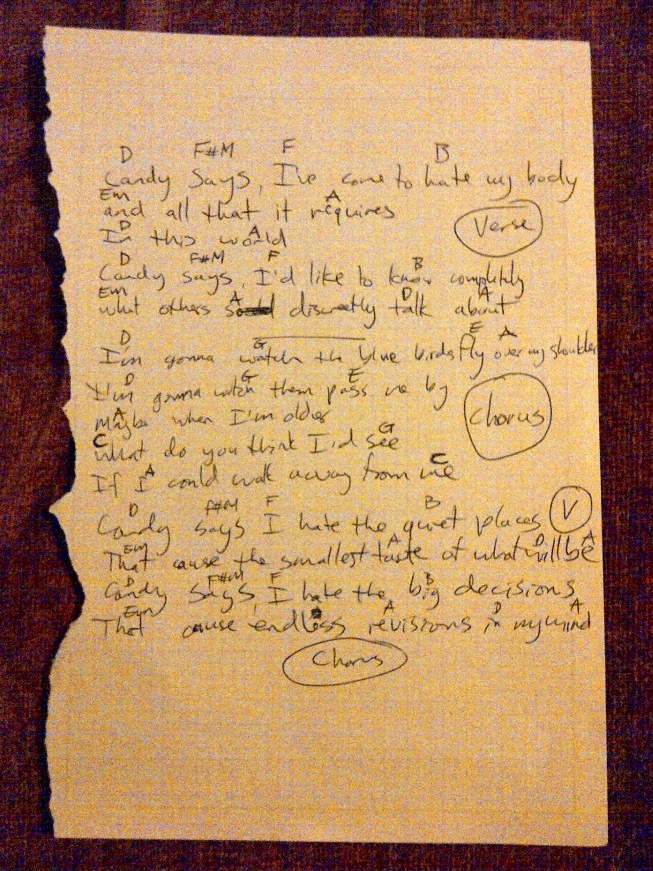 D F#M F B
Candy Says, I've come to hate my body
Em A
and all that it requires
D A
In this world
Verse
D F#M F B
Candy says, I'd like to know completly
Em A D A
what others so discreetly talk about
D G E A
I'm gonna watch the blue birds fly over my shoulder
D G E
I'm gonna watch them pass me by
A
Maybe when I'm older
Chorus
C G
What do you think I'd see
A C
If I could walk away from me
D F#M F B
Candy says I hate the quiet places
V
Em A D A
That cause the smallest taste of what will be
D F#M F B
Candy Says, I hate the big decisions
Em A D A
That cause endless revisions in my mind
Chorus